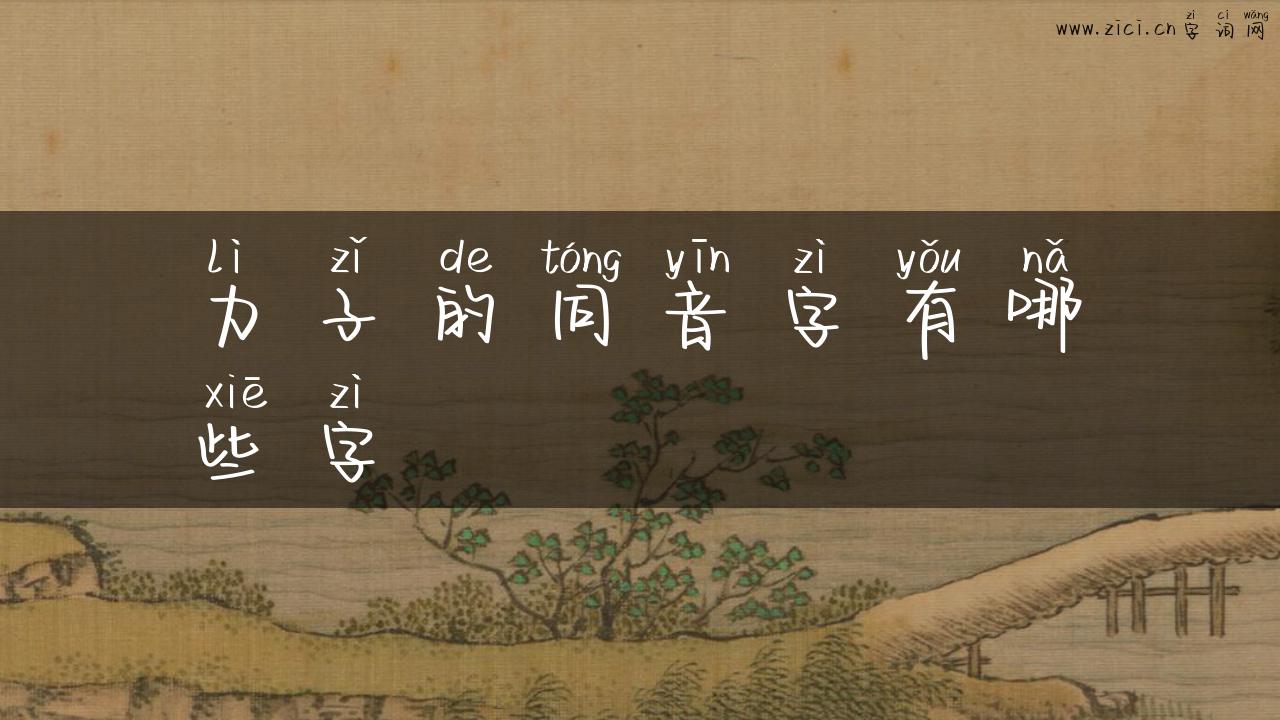 zì cí wǎng
www.zici.cn 字词网
lì zǐ de tóng yīn zì yǒu nǎ
力子的同音字有哪
xiē zì
些字